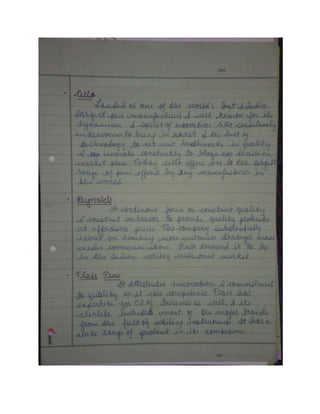 Date
Cello
Lauded as one of the world's best & India's
largest pen manufacturers & well known for its
dynamism & spirit of innovation Cello constantly
endeavours to bring in newest & the best of
technology to set new in quality
& innovate constantly to stay
market place Today cello offers one of the largest
range of pens offered by any manufacturer in
the world.
Reynolds
It continuous focus on constant quality
& constant endeavor to provide quality products
at affordable prices The company substantially
invest on reaching more customer through mass
media communication. Have it to be
in the Indian writing instrument market.
Flair Pens
It attributes innovation & commitment
to quality as it core competence. Flair has
expertise for OEM business as well & its
clientele includes most of the major brands
from the field of writing instrument. It has a
wide range of product in its